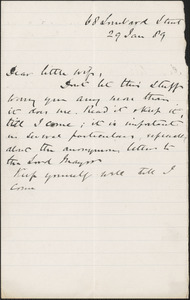 68 Lombard Street
29 Jan 89
Dear little wife,
Don't let this stuff
worry you any more than
it does me. Read it & keep it,
till I come; it is important
in several particulars, especially
about the anonymous letter to
the Lord Mayor
Keep yourself well till I
come